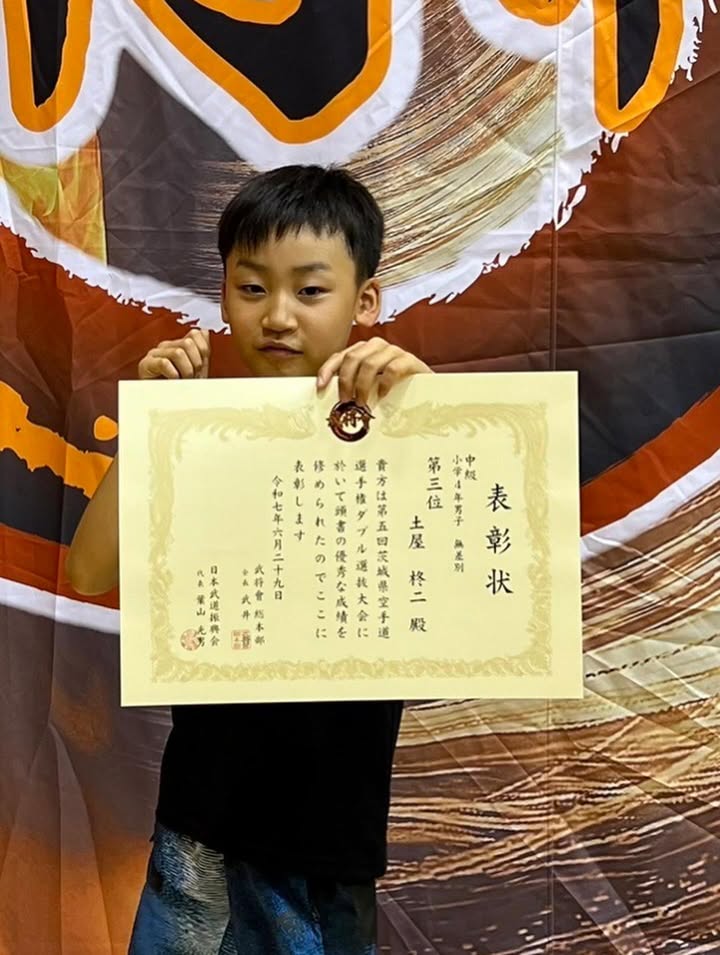 表彰状
中級
小学4年男子　無差別
第三位
土屋　柊二　殿
貴方は第五回茨城県空手道
選手権ダブル選抜大会に
於いて頭書の優秀な成績を
修められたのでここに
表彰します
令和七年六月二十九日
武将會 総本部
会長 武井
日本武道振興会
代表 葉山 光男